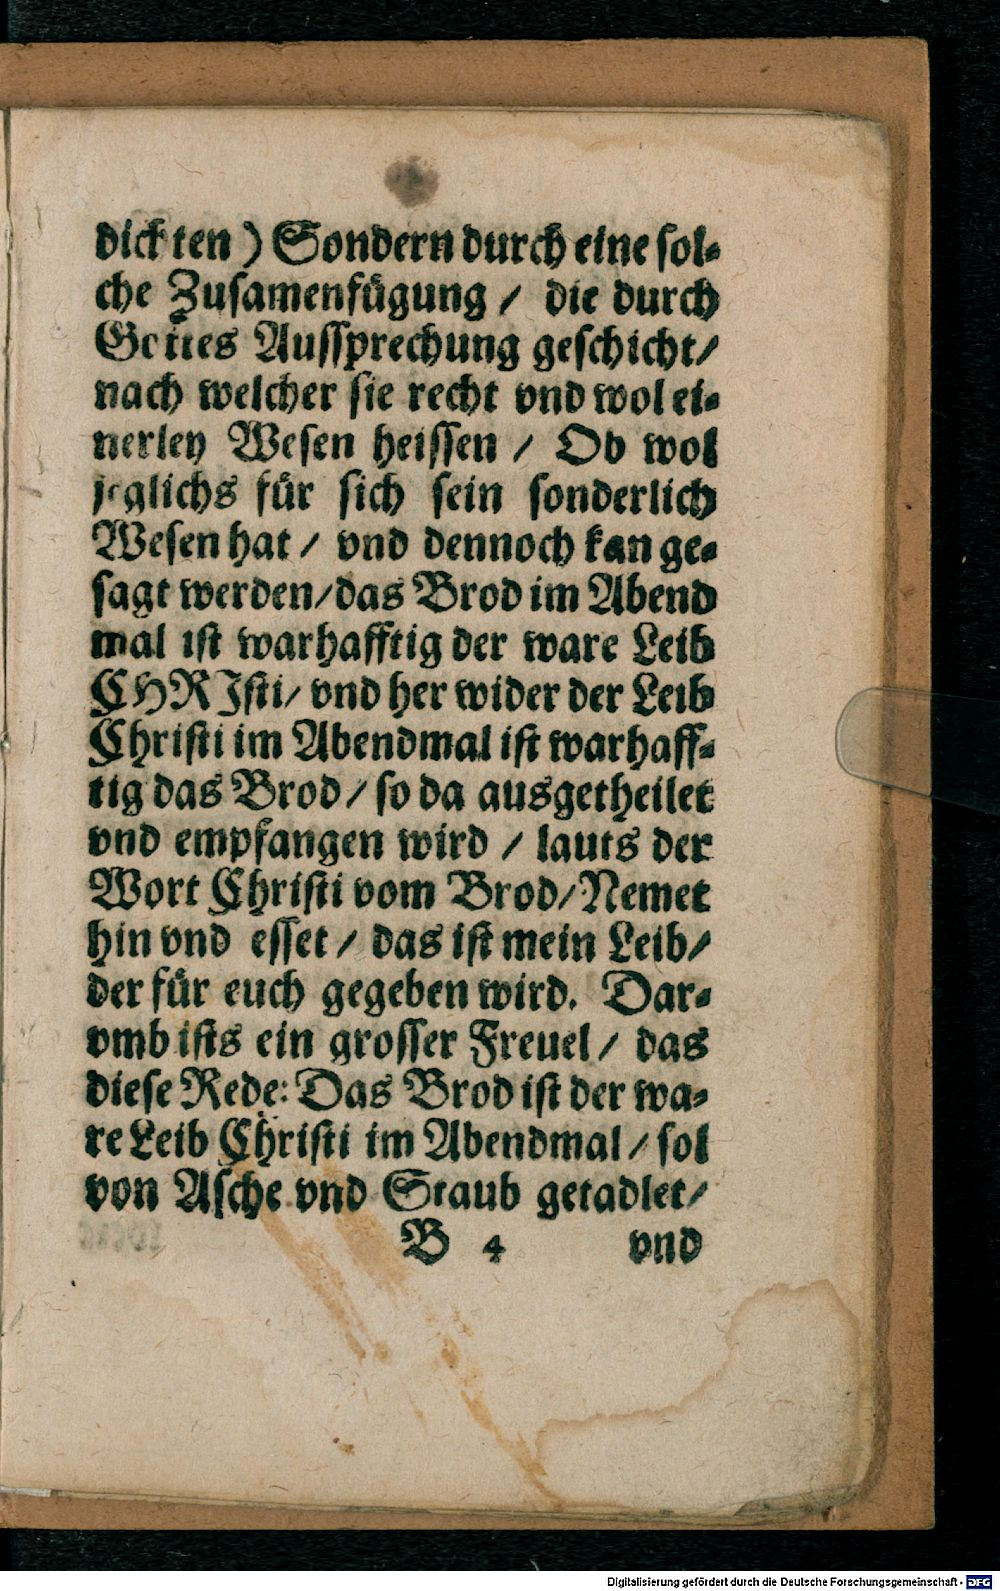 dickten ) Sondern durch eine sol-
che Zusamenfügung / die durch
Gottes Aussprechung geschicht/
nach welcher sie recht vnd wol ei-
nerley Wesen heissen / Ob wol
jeglichs für sich sein sonderlich
Wesen hat / vnd dennoch kan ge-
sagt werden/das Brod im Abend
mal ist warhafftig der ware Leib
CHRIsti/ vnd her wider der Leib
Christi im Abendmal ist warhaff-
tig das Brod / so da ausgetheilet
vnd empfangen wird / lauts der
Wort Christi vom Brod/Nemet
hin vnd esset / das ist mein Leib/
der für euch gegeben wird. Dar-
vmb ists ein grosser Freuel / das
diese Rede: Das Brod ist der wa-
re Leib Christi im Abendmal / sol
von Asche vnd Staub getadlet/
B 4 vnd
Digitalisierung gefördert durch die Deutsche Forschungsgemeinschaft - DFG